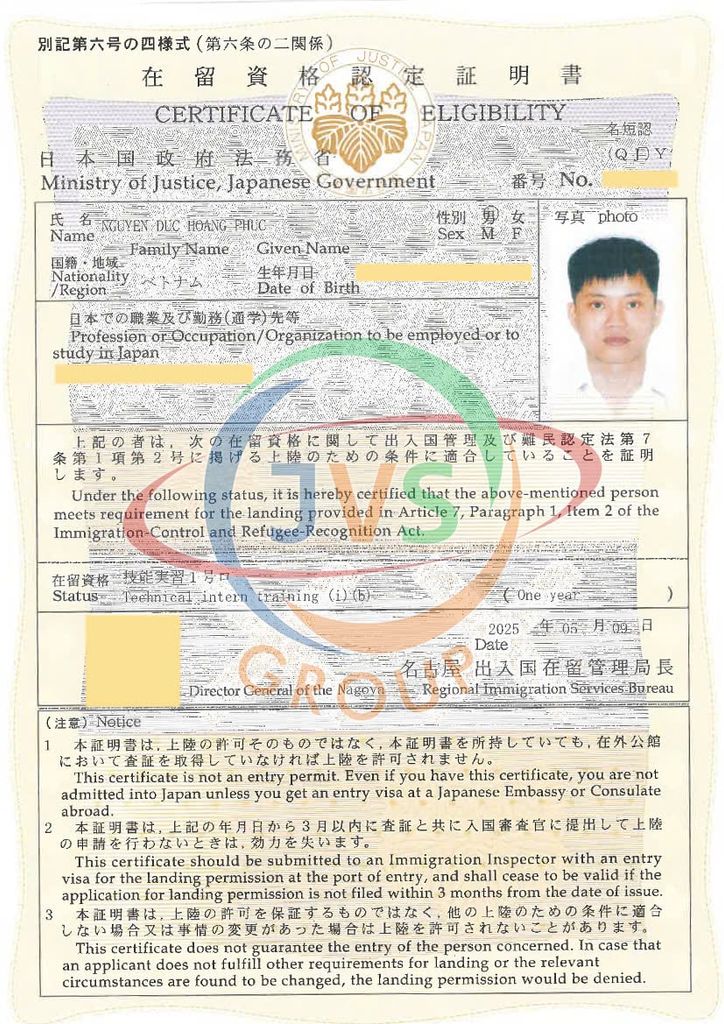 別記第六号の四様式(第六条の二関係)
在留資格認定証明書
CERTIFICATE OF ELIGIBILITY
名短認
日本国政府法務省
(QEY)
Ministry of Justice, Japanese Government
番号 No.
氏名 NGUYEN DUC HOANG PHUC
Name
Family Name Given Name
性別 男 女
Sex M F
写真 photo
国籍・地域
Nationality ベトナム
/Region
生年月日
Date of Birth
日本での職業及び勤務(通学)先等
Profession or Occupation/Organization to be employed or to
study in Japan
上記の者は,次の在留資格に関して出入国管理及び難民認定法第7
条第1項第2号に掲げる上陸のための条件に適合していることを証明
します。
Under the following status, it is hereby certified that the above-mentioned person
meets requirement for the landing provided in Article 7, Paragraph 1, Item 2 of the
Immigration-Control and Refugee-Recognition Act.
JVS
在留資格 技能実習1号ロ
Status Technical intern training (i)(b) ( One year )
2025 年 05 月 09 日
Date
名古屋 出入国在留管理局長
Director General of the Nagoya Regional Immigration Services Bureau
GROUP
(注意) Notice
1 本証明書は,上陸の許可そのものではなく,本証明書を所持していても,在外公館
において査証を取得していなければ上陸を許可されません。
This certificate is not an entry permit. Even if you have this certificate, you are not
admitted into Japan unless you get an entry visa at a Japanese Embassy or Consulate
abroad.
2 本証明書は,上記の年月日から3月以内に査証と共に入国審査官に提出して上陸
の申請を行わないときは,効力を失います。
This certificate should be submitted to an Immigration Inspector with an entry
visa for the landing permission at the port of entry, and shall cease to be valid if the
application for landing permission is not filed within 3 months from the date of issue.
3 本証明書は,上陸の許可を保証するものではなく,他の上陸のための条件に適合
しない場合又は事情の変更があった場合は上陸を許可されないことがあります。
This certificate does not guarantee the entry of the person concerned. In case that
an applicant does not fulfill other requirements for landing or the relevant
circumstances are found to be changed, the landing permission would be denied.